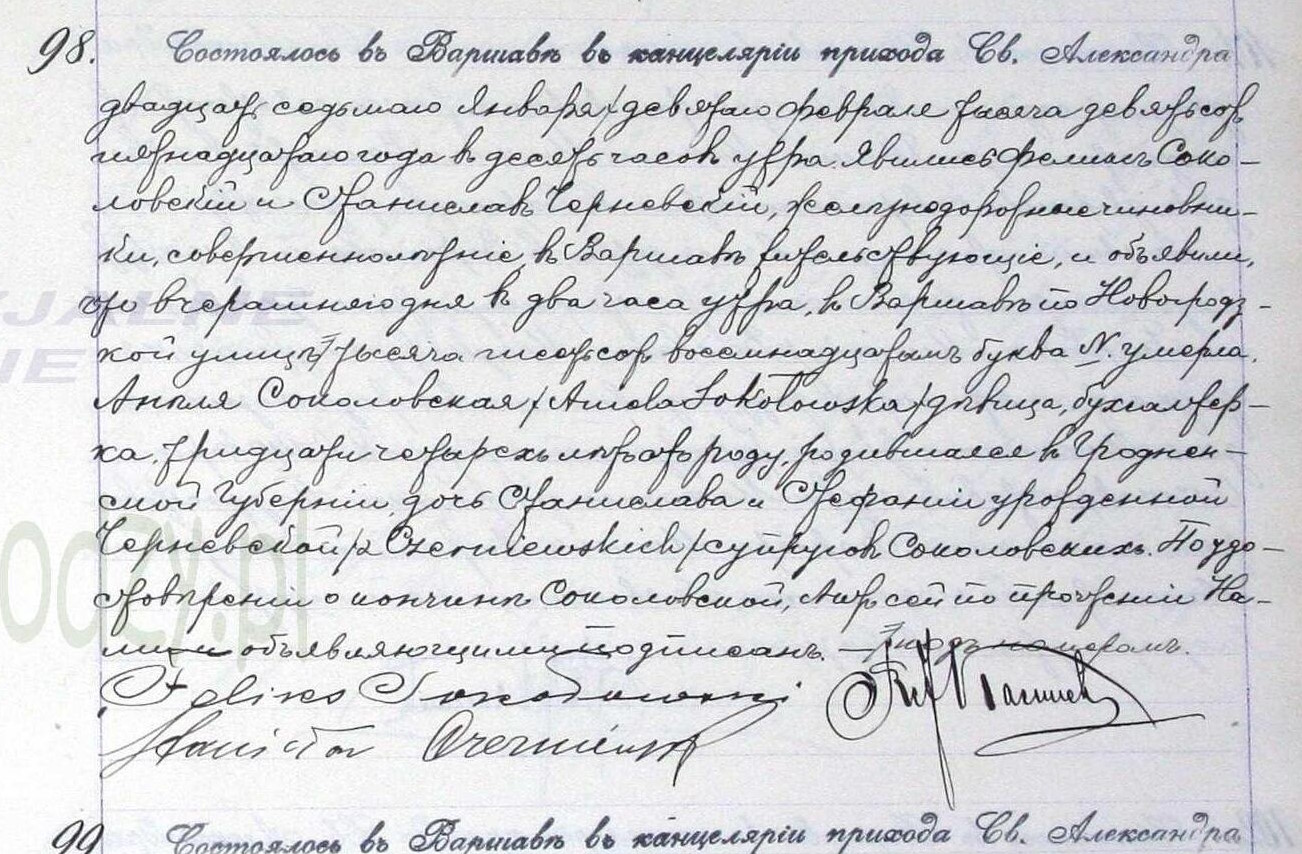 98. Состоялось въ Варшавѣ въ канцеляріи прихода Св. Александра
двадцать седьмаго Января/девятаго февраля тысяча девятьсотъ
пятнадцатаго года въ десять часовъ утра. Явились Феликсъ Соко-
ловскій и Станиславъ Черневскій, желѣзнодорожные чиновни-
ки, совершеннолѣтніе, въ Варшавѣ жительствующіе, и объявили,
что вчерашняго дня въ два часа утра, въ Варшавѣ по Новогродз-
кой улицѣ тысяча шестьсотъ восемнадцатымъ буква N. умерла
Анѣля Соколовская /Aniela Sokołowska/ дѣвица, бухгалтер-
ка, тридцати четырехъ лѣтъ отъ роду, родившаяся въ Гроднен-
ской Губерніи, дочь Станислава и Стефаніи урожденной
Черневской /z Czerniewskich/ супруговъ Соколовскихъ. По удо-
стовѣреніи о кончинѣ Соколовской, Актъ сей по прочтеніи На-
ми и объявляющими подписанъ. — подъ номеромъ.
Feliks Sokołowski
Stanisław Czerniewski
99 Состоялось въ Варшавѣ въ канцеляріи прихода Св. Александра
JALNE
IE
oczy.pl